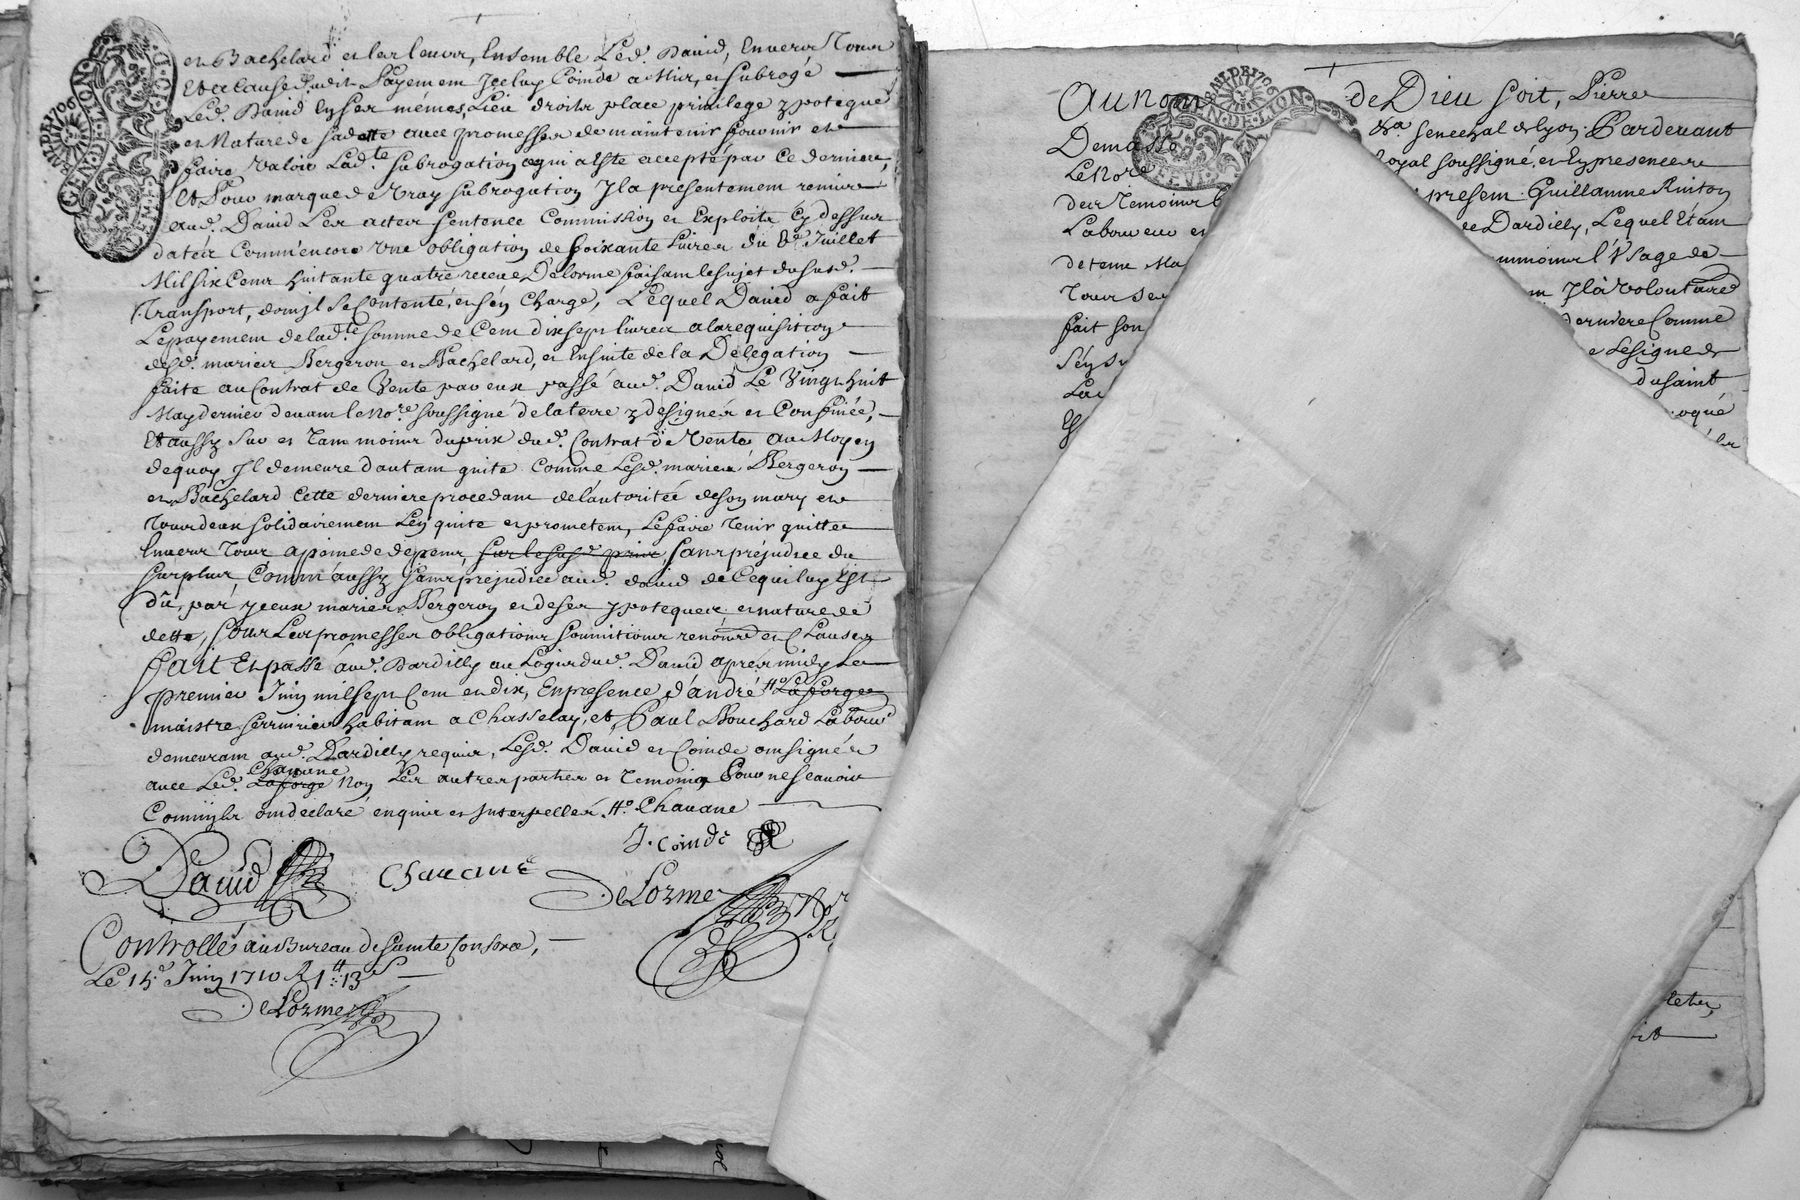 GEN·DE·LYON
et Bachelard et les leurs, Ensemble Led. David, Envers Tous
Et a Cause dudit Payement Jceluy Coinde a Mis, et subrogé
Led. David En ses memes, Lieu droits place privilege ypoteque
et Nature de sa dette avec promesse de maintenir fournir et
faire Valoir Lad.te subrogation ce qui a Esté accepté par ce dernier,
Et Pour marque de Vray subrogation Jl a presentement remis
aud. David Les actes sentence Commission et Exploits Cy dessus
datés Comm'encore Une obligation de soixante Livres du Juillet
Mil six Cens huitante quatre receue Delorme faisant le sujet du susd.
Transport, dont Jl se Contente, et s'en Charge, Lequel David a fait
Le payement de lad.te somme de Cent dix sept livres a la requisition
desd. mariés Bergeron et Bachelard, et Ensuite de la Delegation
faite au Contrat de Vente par eux passé aud. David Le Vingt huit
May dernier devant le No.re soussigné de la terre y designée et Confinée,
Et aussy sur et Tant moins du prix dud. Contrat de Vente au Moyen
de quoy Jl demeure d'autant quite Comme Lesd. mariés Bergeron
et Bachelard cette derniere procedant de l'autorité de son mary et
Tous deux solidairement L'en quite et prometent, Le faire Tenir quitte
Envers Tous a peine de depens, sur le susd. prix sans prejudice du
surplus Comm'aussy sans prejudice aud. david de Ce qui luy Est
dû, par yceux mariés Bergeron et de ses ypoteques et nature de
dette, Pour Les promesses obligations soumitions renonces et Clauses
Fait Et passé aud. Dardilly au Logis dud. David après midy Le
premier Juin mil sept Cent et dix, En presence d'andré Ho Laforge
maistre serrurier habitant a Chasselay, et Paul Bouchard Labour
demeurant aud. Dardilly requis, Lesd. David et Coinde ont signé
Chavane
avec Led. Laforge Non Les autres parties et Temoins Pour ne scavoir
Comm'yls ont declaré enquis et Interpellés. Ho Chavane
J. Coinde
David Chavane
DeLorme
Controllé au Bureau de Sainte Consorce,
Le 15.e Juin 1710 R 1tt 13s
DeLorme
GEN·DE·LYON
Au nom de Dieu soit, Pierre
Demasse Senechal de Lyon. Pardevant
Le No.re Royal soussigné, et En presence
des Temoins present Guillaume Pinton
Laboureur de Dardilly, Lequel Etant
l'Usage de
Jl a Volontaire
fait son derniere Comme
Le signe de
du saint